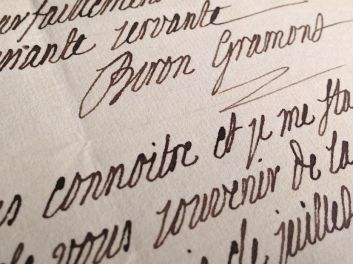 parfaittement
servante
Biron Gramont
connoitre et je me fla
vous souvenir de la
de juillet